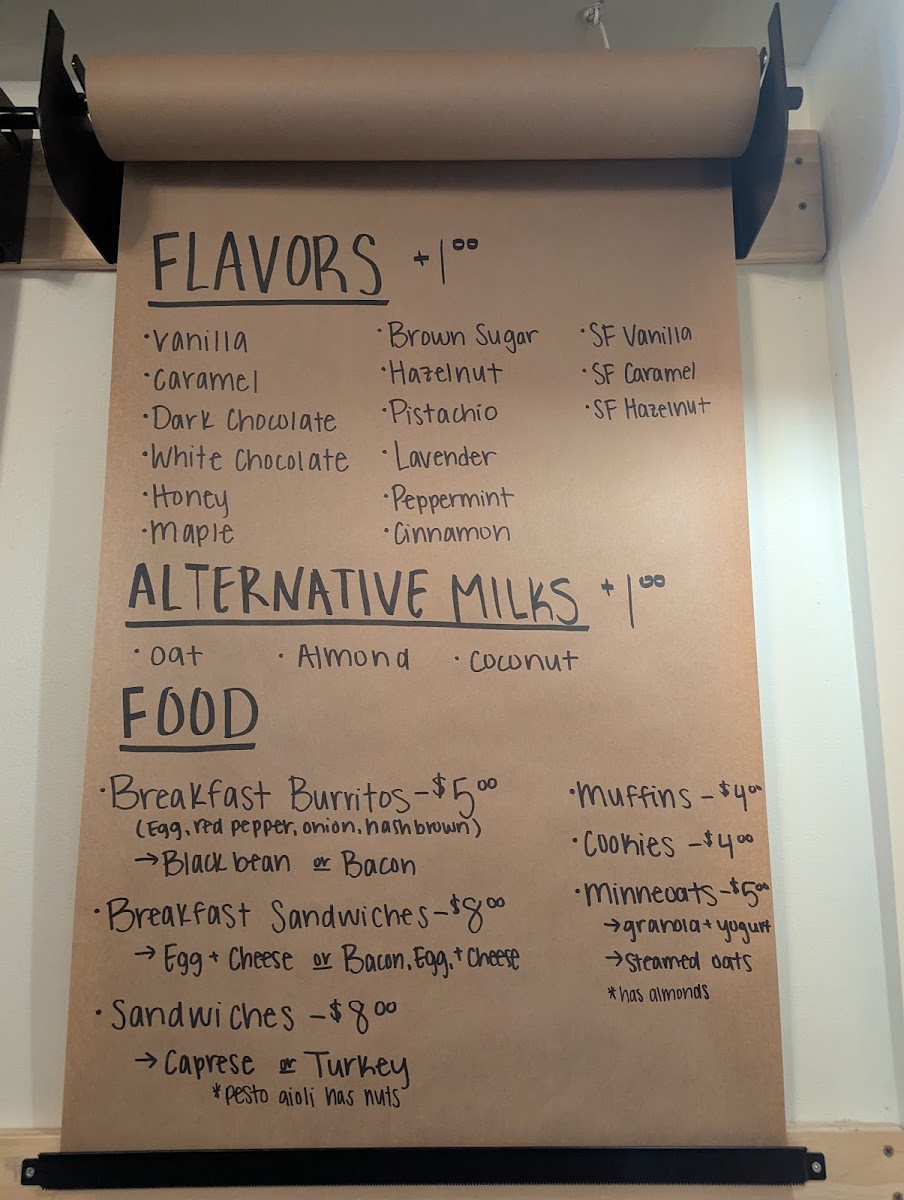 FLAVORS +1.00
·Vanilla
·Caramel
·Dark Chocolate
·White Chocolate
·Honey
·Maple
·Brown Sugar
·Hazelnut
·Pistachio
·Lavender
·Peppermint
·Cinnamon
·SF Vanilla
·SF Caramel
·SF Hazelnut
ALTERNATIVE MILKS +1.00
·Oat ·Almond ·Coconut
FOOD
·Breakfast Burritos-$5.00
(Egg, red pepper, onion, hashbrown)
→Black bean or Bacon
·Breakfast Sandwiches-$8.00
→Egg + Cheese or Bacon, Egg, + Cheese
·Sandwiches -$8.00
→Caprese or Turkey
*pesto aioli has nuts
·Muffins -$4.00
·Cookies -$4.00
·Minneoats-$5.00
→granola + yogurt
→steamed oats
*has almonds